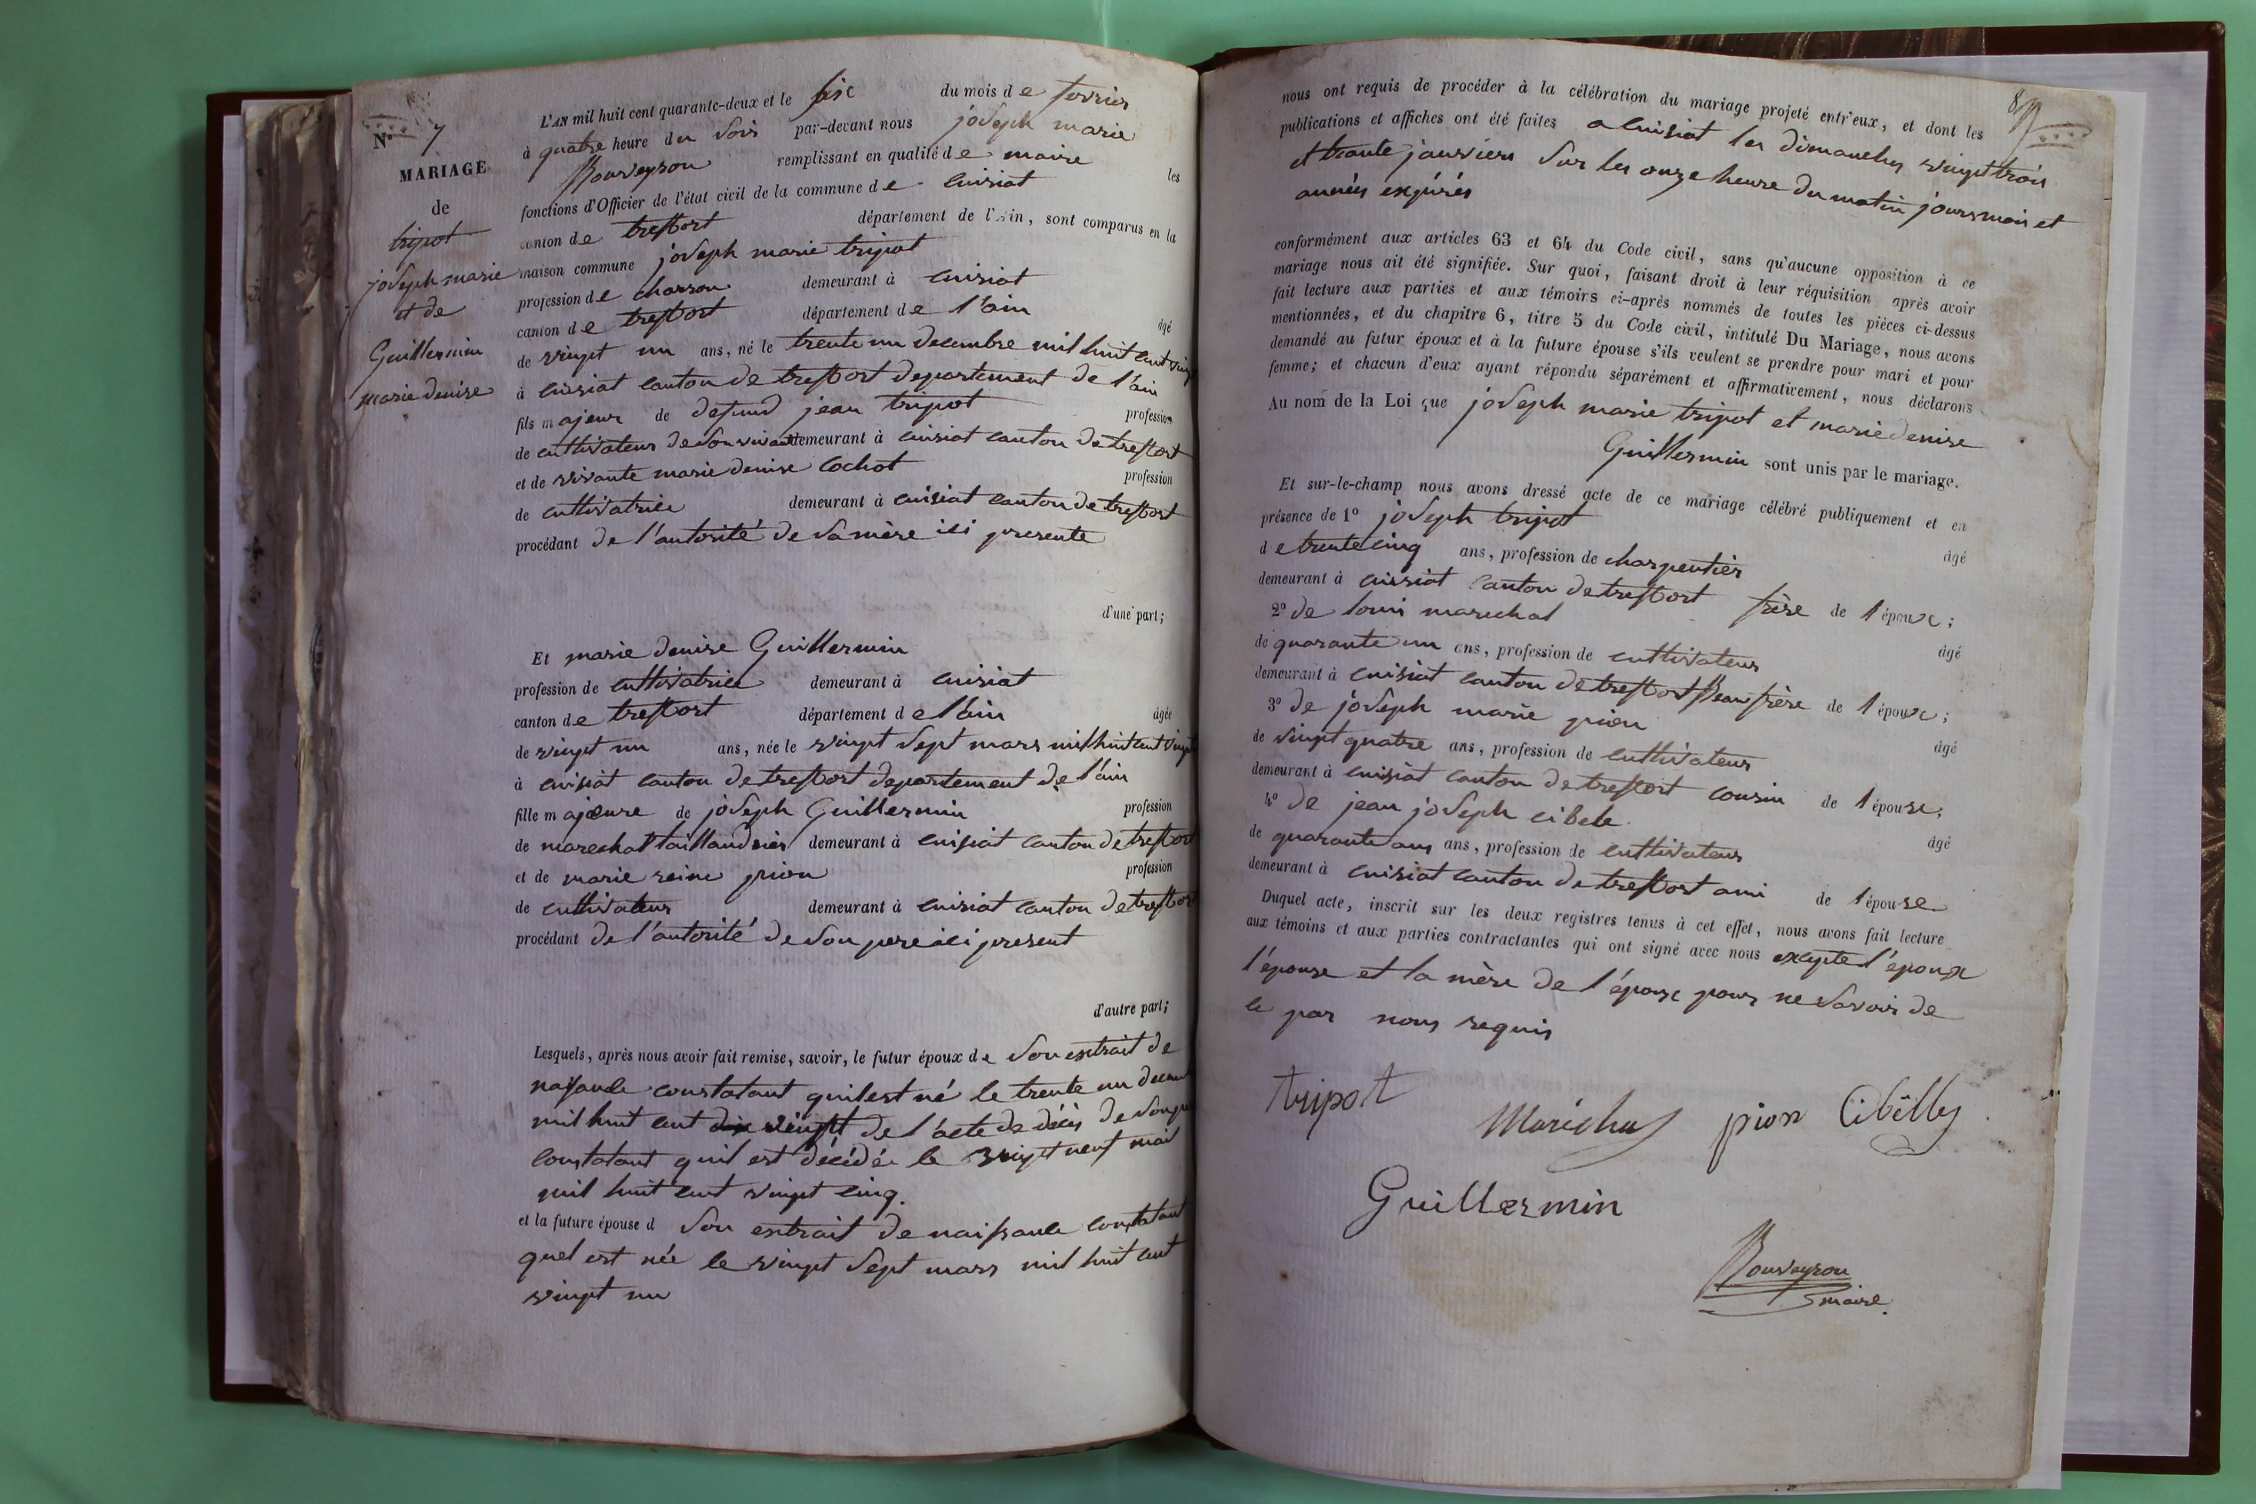 N° 7
MARIAGE
de
tripot
joseph marie
et de
Guillermin
marie denise
L'AN mil huit cent quarante-deux et le six du mois de fevrier
à quatre heure du soir par-devant nous joseph marie
Bouveyron remplissant en qualité de maire les
fonctions d'Officier de l'état civil de la commune de cuisiat
canton de treffort département de l'Ain, sont comparus en la
maison commune joseph marie tripot
profession de charron demeurant à cuisiat
canton de treffort département de l'ain âgé
de vingt un ans, né le trente un decembre mil huit cent vingt
à cuisiat canton de treffort departement de l'ain
fils majeur de defund jean tripot profession
de cultivateur de son vivant demeurant à cuisiat canton de treffort
et de vivante marie denise cochot profession
de cultivatrice demeurant à cuisiat canton de treffort
procédant de l'autorité de sa mère ici presente
d'une part;
Et marie denise Guillermin
profession de cultivatrice demeurant à cuisiat
canton de treffort département de l'ain âgée
de vingt un ans, née le vingt sept mars mil huit cent vingt
à cuisiat canton de treffort departement de l'ain
fille majeure de joseph Guillermin profession
de marechal taillandrier demeurant à cuisiat canton de treffort
et de marie reine pion profession
de cultivateur demeurant à cuisiat canton de treffort
procédant de l'autorité de son pere ici present
d'autre part;
Lesquels, après nous avoir fait remise, savoir, le futur époux de son extrait de
naissance constatant quil est né le trente un decemb
mil huit cent vingt de l'acte de décès de son
constatant quil est décédé le vingt neuf mai
mil huit cent vingt cinq.
et la future épouse d son extrait de naissance constatant
quel est née le vingt sept mars mil huit cent
vingt un
8
nous ont requis de procéder à la célébration du mariage projeté entr'eux, et dont les
publications et affiches ont été faites a cuisiat les dimanches vingt trois
et trante janviers sur les onze heure du matin jours mois et
année expirés
conformément aux articles 63 et 64 du Code civil, sans qu'aucune opposition à ce
mariage nous ait été signifiée. Sur quoi, faisant droit à leur réquisition après avoir
fait lecture aux parties et aux témoirs ci-après nommés de toutes les pièces ci-dessus
mentionnées, et du chapitre 6, titre 5 du Code civil, intitulé Du Mariage, nous avons
demandé au futur époux et à la future épouse s'ils veulent se prendre pour mari et pour
femme; et chacun d'eux ayant répondu séparément et affirmativement, nous déclarons
Au nom de la Loi que joseph marie tripot et marie denise
Guillermin sont unis par le mariage.
Et sur-le-champ nous avons dressé acte de ce mariage célébré publiquement et en
présence de 1° joseph tripot âgé
de trente cinq ans, profession de charpentier
demeurant à cuisiat canton de treffort frère de l'époux;
2° de louis marechal âgé
de quarante un ans, profession de cultivateur
demeurant à cuisiat canton de treffort Beau frère de l'époux;
3° de joseph marie pion âgé
de vingt quatre ans, profession de cultivateur
demeurant à cuisiat canton de treffort cousin de l'épouse;
4° de jean joseph cibele âgé
de quarante ans ans, profession de cultivateur
demeurant à cuisiat canton de treffort ami de l'épouse
Duquel acte, inscrit sur les deux registres tenus à cet effet, nous avons fait lecture
aux témoins et aux parties contractantes qui ont signé avec nous excepte l'époux
l'épouse et la mère de l'époux pour ne savoir de
ce par nous requis
tripot
Maréchal pion Cibelly
Guillermin
Bouveyron
maire.